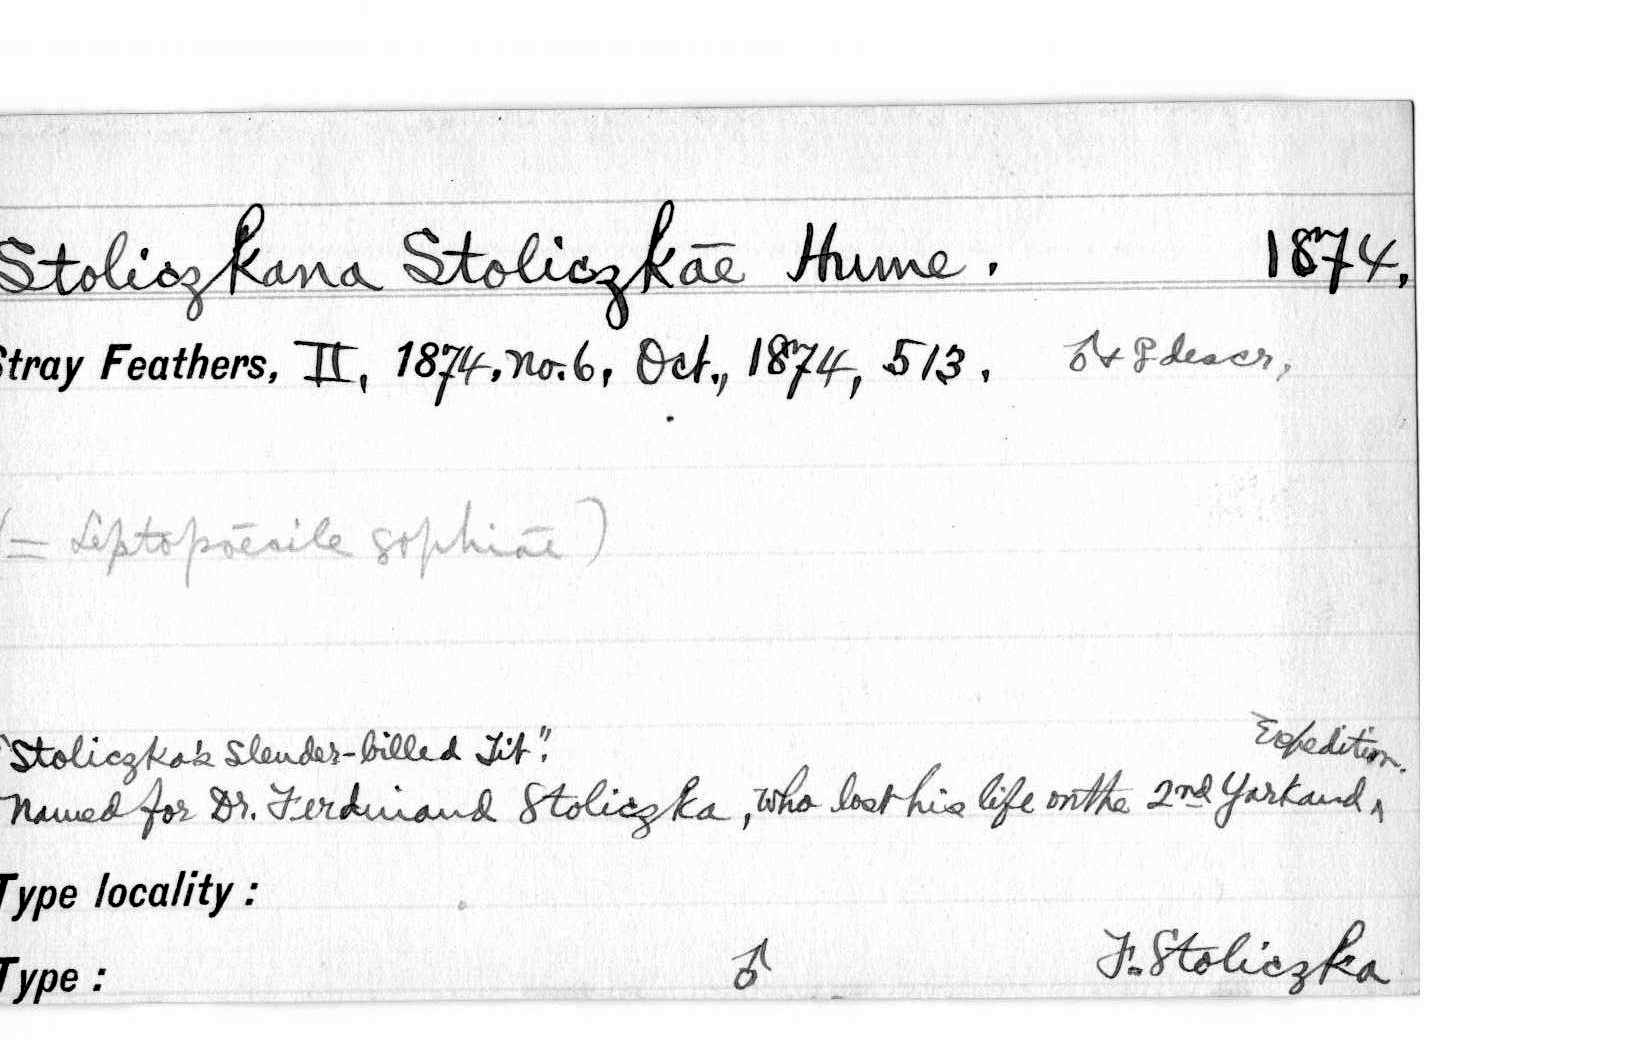 Stoliczkana Stoliczkāe Hume. 1874,
Stray Feathers, II, 1874, no. 6, Oct., 1874, 513. ♂ + ♀ descr,
(= Leptopōecile sophiāe)
"Stoliczka's Slender-billed Tit".
Named for Dr. Ferdinand Stoliczka, who lost his life on the 2nd Yarkand ^ Expedition.
Type locality:
Type: ♂ F. Stoliczka